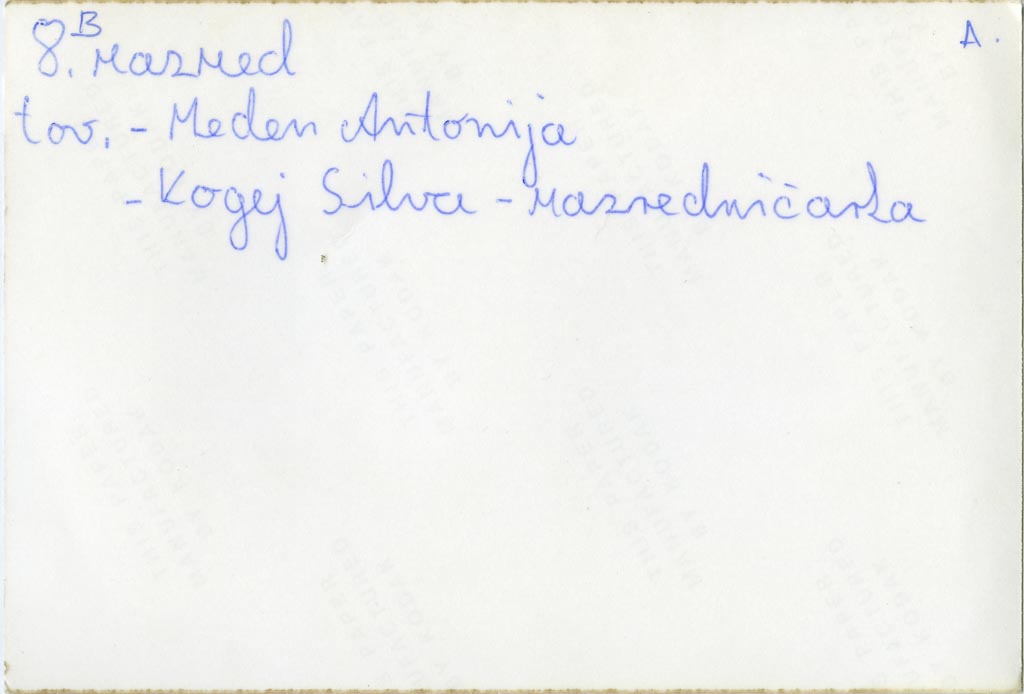 8.B razred
A.
tov. - Meden Antonija
- Kogej Silva - razredničarka
THIS PAPER
MANUFACTURED
BY KODAK